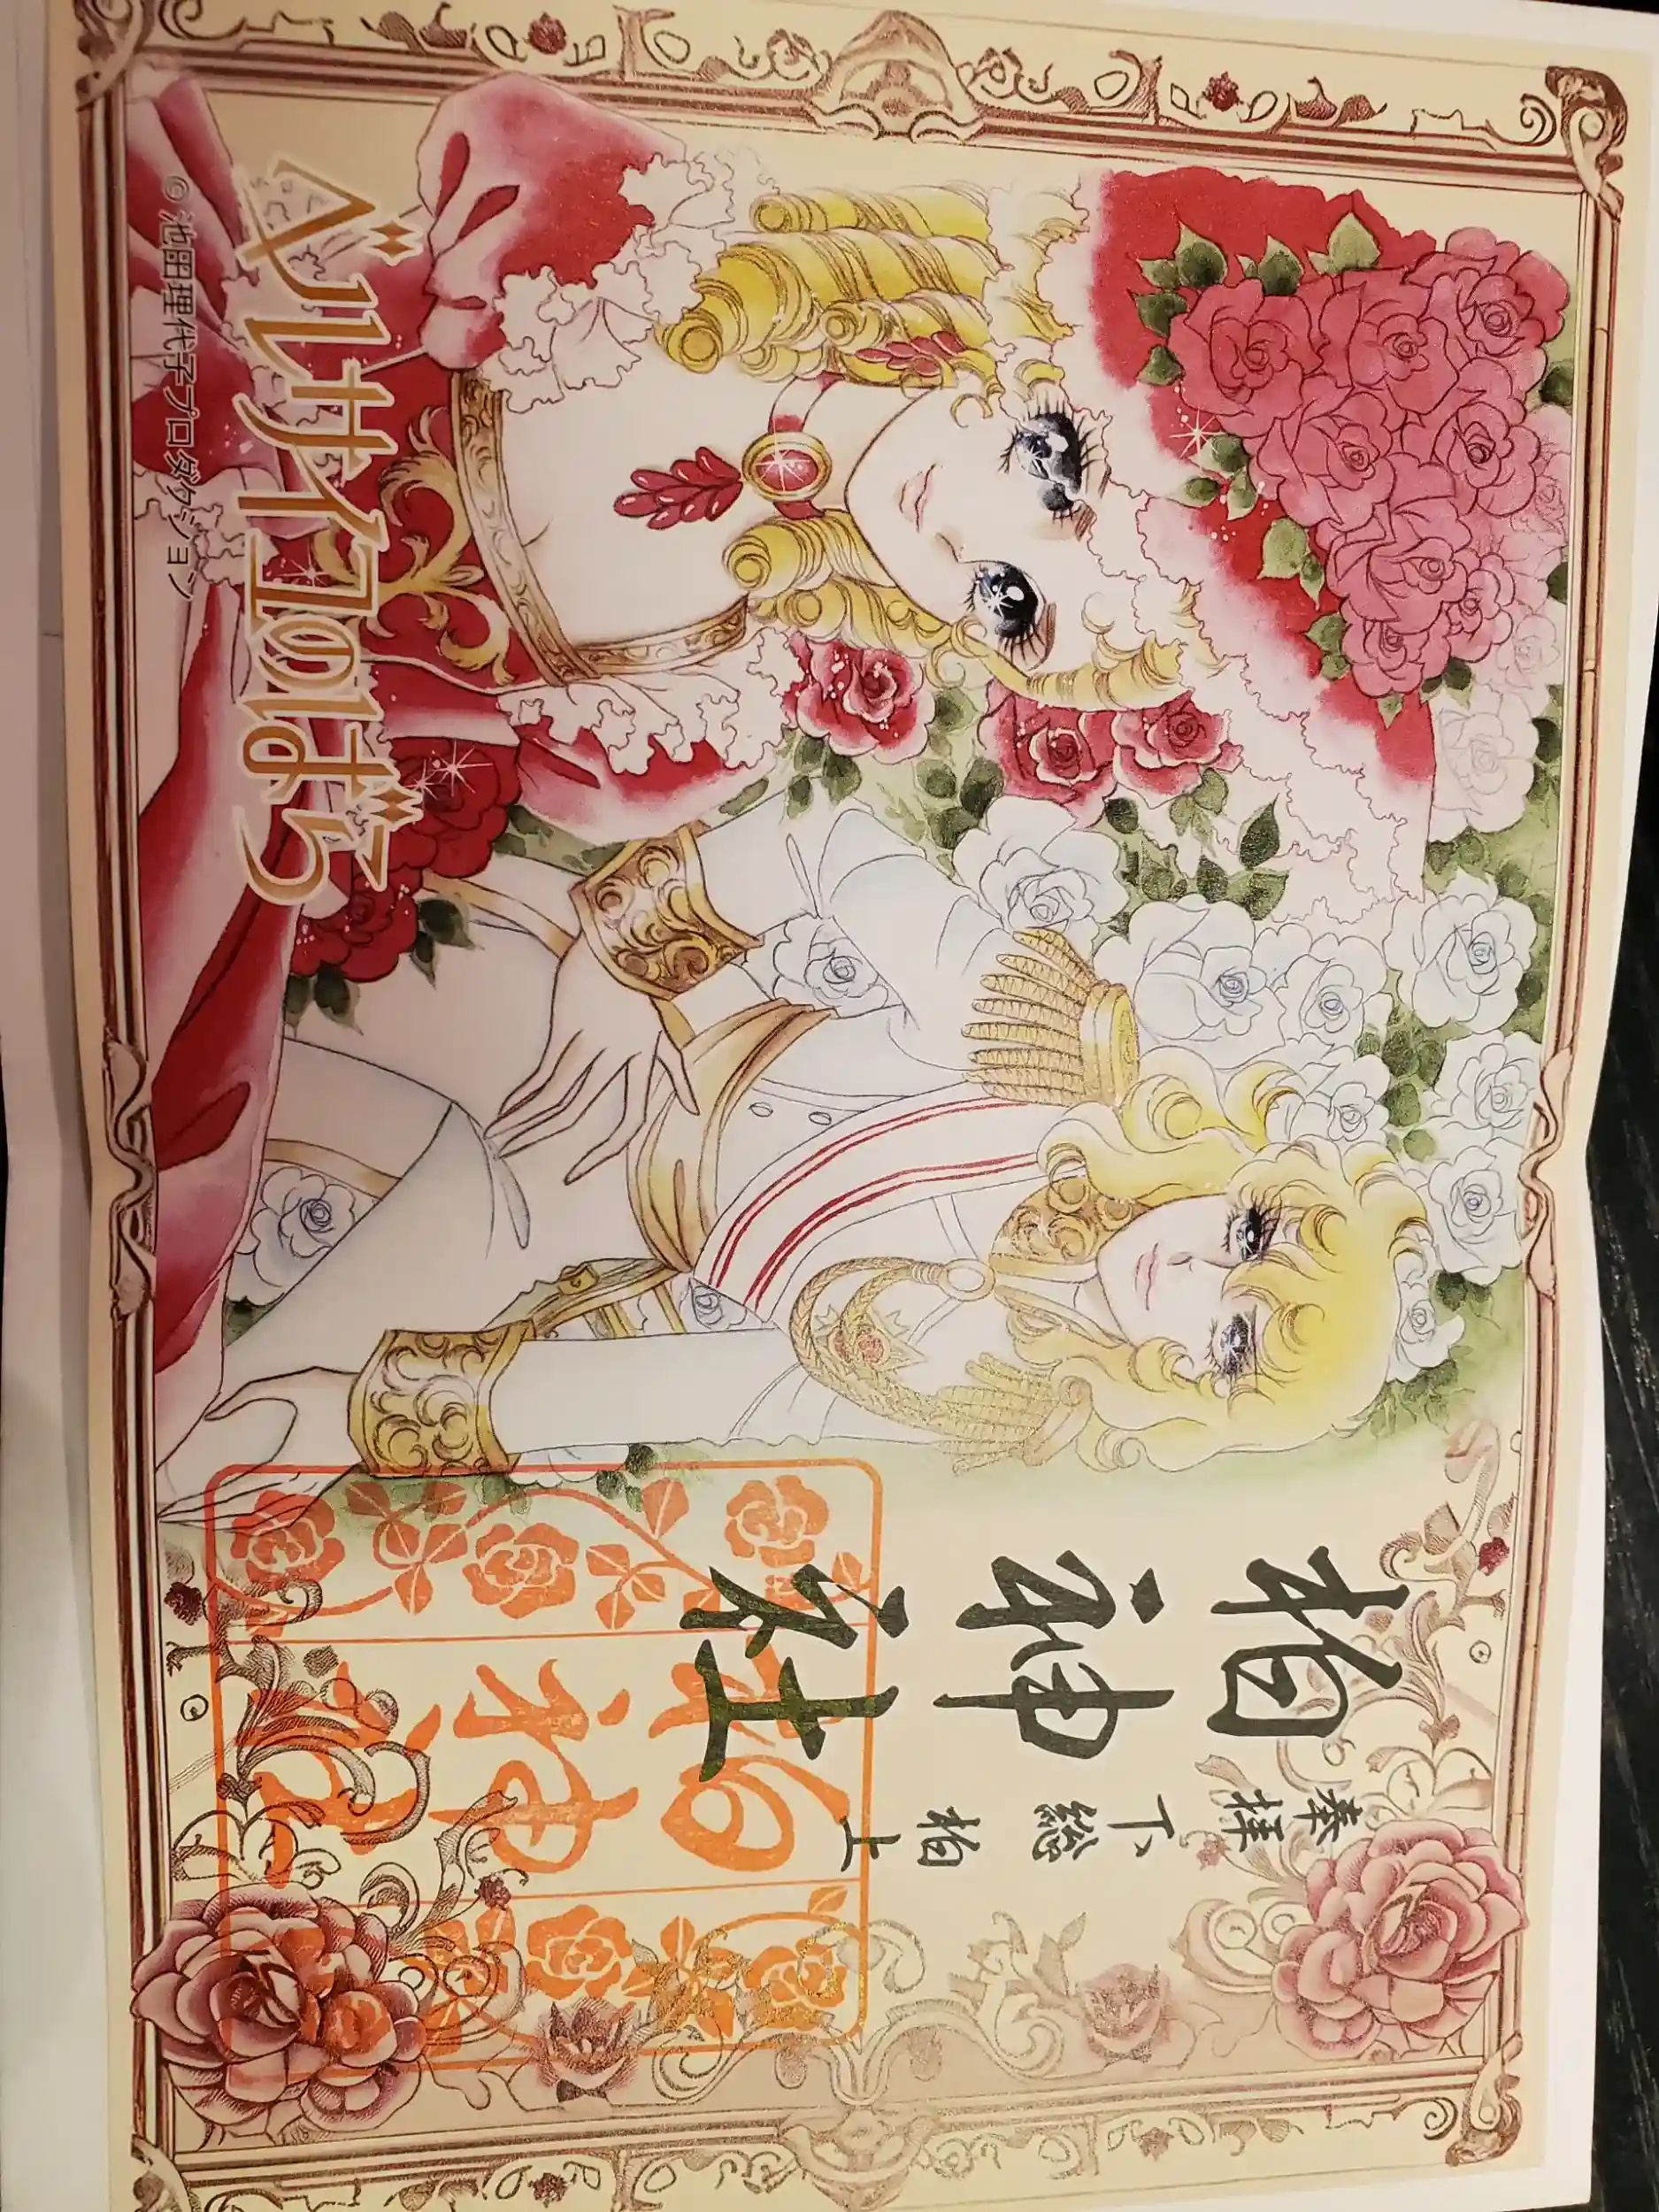 ベルサイユのばら
©池田理代子プロダクション
奉拝
下総
柏上
柏神社
柏神社